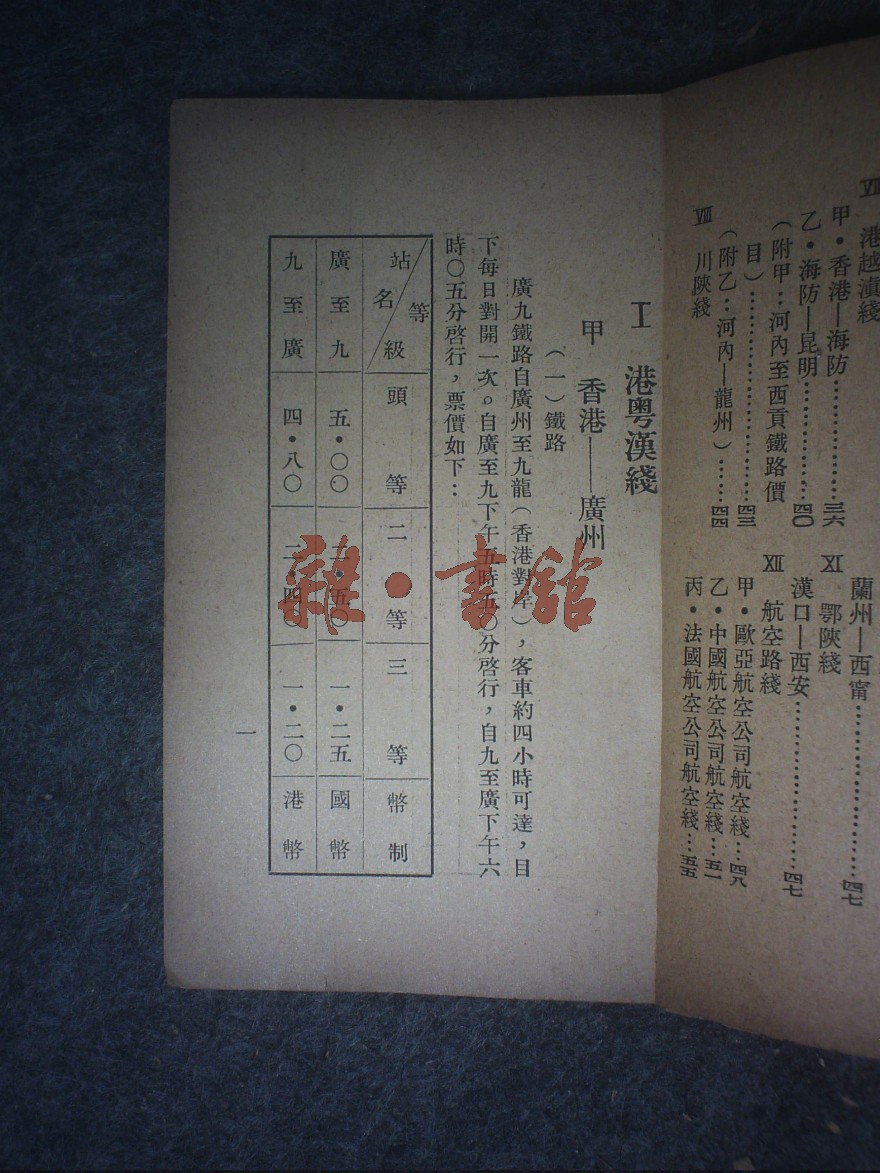 VII 港越滇綫
甲・香港—海防……………三六
乙・海防—昆明……………四〇
（附甲：河內至西貢鐵路價
目）……………四三
（附乙：河內—龍州）……四四
VIII 川陝綫
蘭州—西甯……………四七
XI 鄂陝綫
漢口—西安……………四七
XII 航空路綫
甲・歐亞航空公司航空綫…四八
乙・中國航空公司航空綫…五一
丙・法國航空公司航空綫…五五
I 港粵漢綫
甲 香港——廣州
（一）鐵路
廣九鐵路自廣州至九龍（香港對岸），客車約四小時可達，目
下每日對開一次。自廣至九下午五時五〇分啓行，自九至廣下午六
時〇五分啓行，票價如下：
站名 等級 頭等 二等 三等 幣制
廣至九 五・〇〇 二・五〇 一・二五 國幣
九至廣 四・八〇 二・四〇 一・二〇 港幣
一
雜・書館